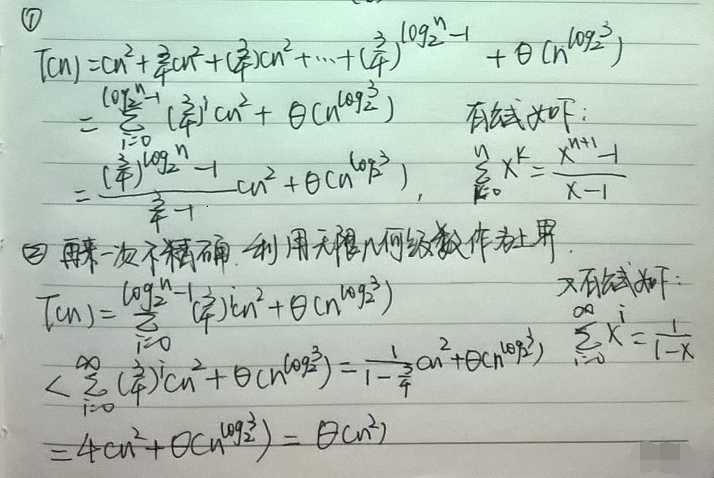 ①
T(n) = cn² + 3/4 cn² + (3/4)cn² + ⋯ + (3/4)^(log₂n − 1) + θ(n^(log₂3))
= Σ_{i=0}^{log₂n − 1} (3/4)^i cn² + θ(n^(log₂3))
有公式如下：
= ((3/4)^(log₂n) − 1)/(3/4 − 1) cn² + θ(n^(log₂3)),
Σ_{k=0}^{n} x^k = (x^(n+1) − 1)/(x − 1)
② 再来一次不精确，利用无限几何级数作为上界.
T(n) = Σ_{i=0}^{log₂n − 1} (3/4)^i cn² + θ(n^(log₂3))
又有公式如下：
< Σ_{i=0}^{∞} (3/4)^i cn² + θ(n^(log₂3)) = 1/(1 − 3/4) cn² + θ(n^(log₂3))
Σ_{i=0}^{∞} x^i = 1/(1 − x)
= 4cn² + θ(n^(log₂3)) = θ(n²)